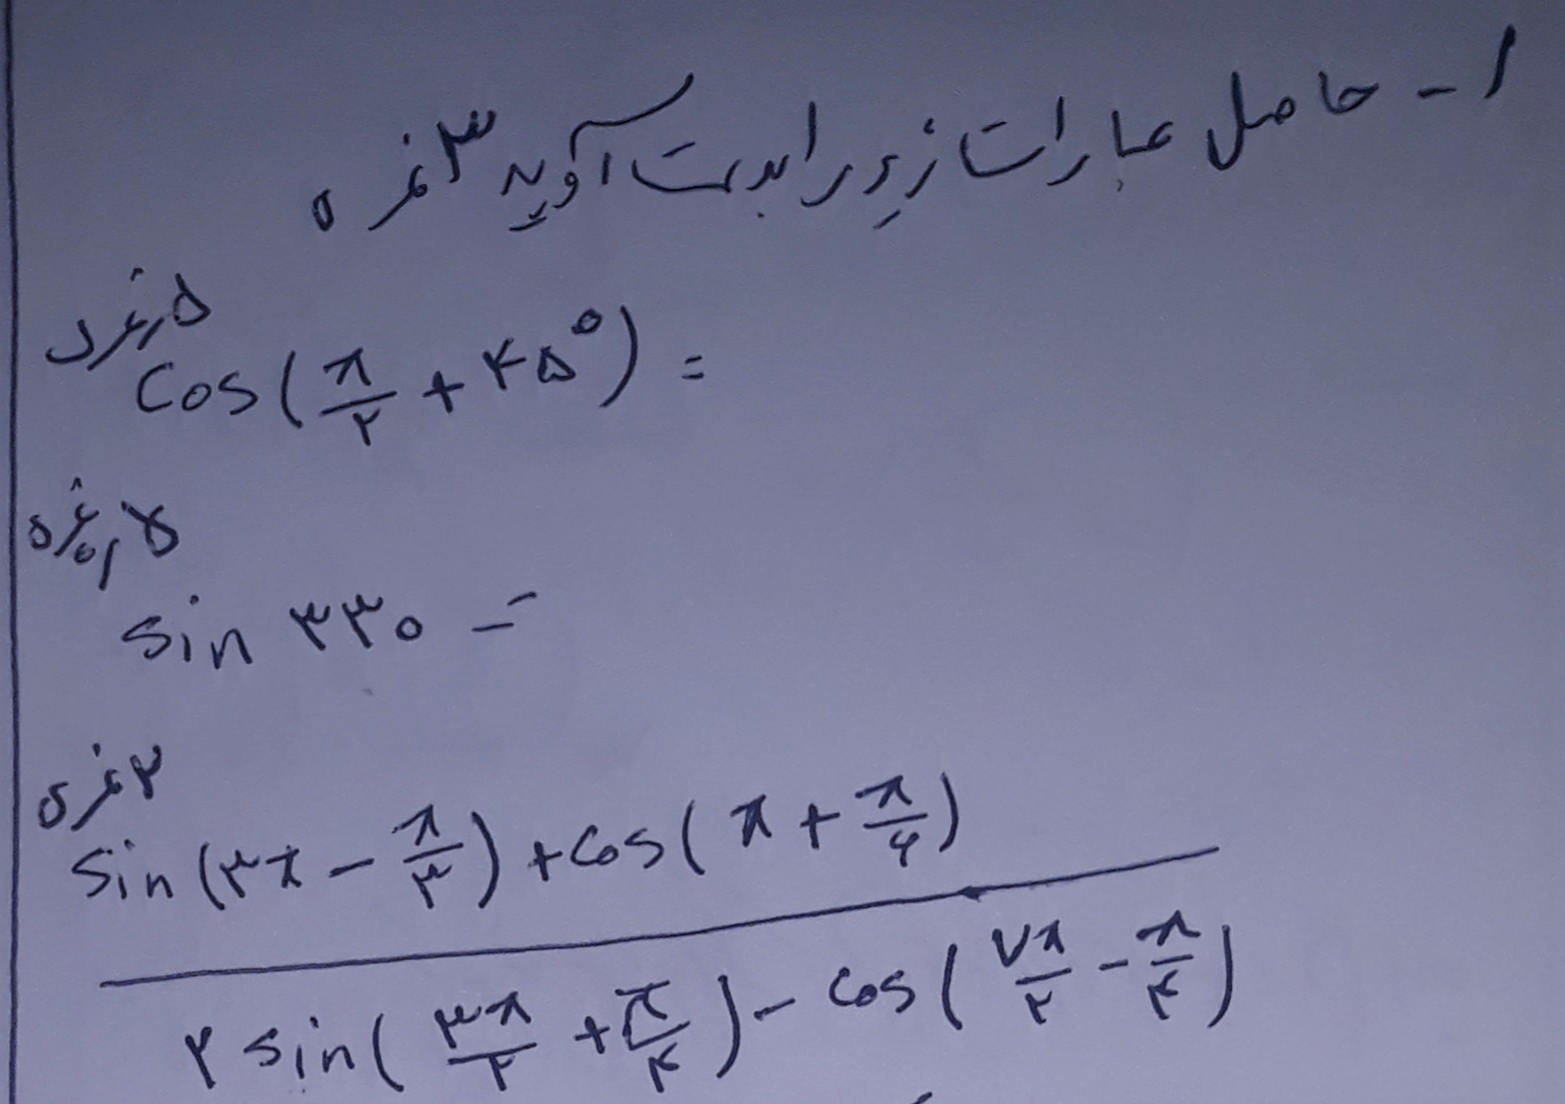 ۱- حاصل عبارات زیر را بدست آورید ۳ نمره
۵ر. نمره
Cos(π/۲ + ۴۵°) =
۵ر. نمره
Sin ۳۳۰ =
۲ نمره
(Sin(۳π - π/۳) + Cos(π + π/۶)) / (۲ Sin(۳π/۲ + π/۴) - Cos(۷π/۲ - π/۴))